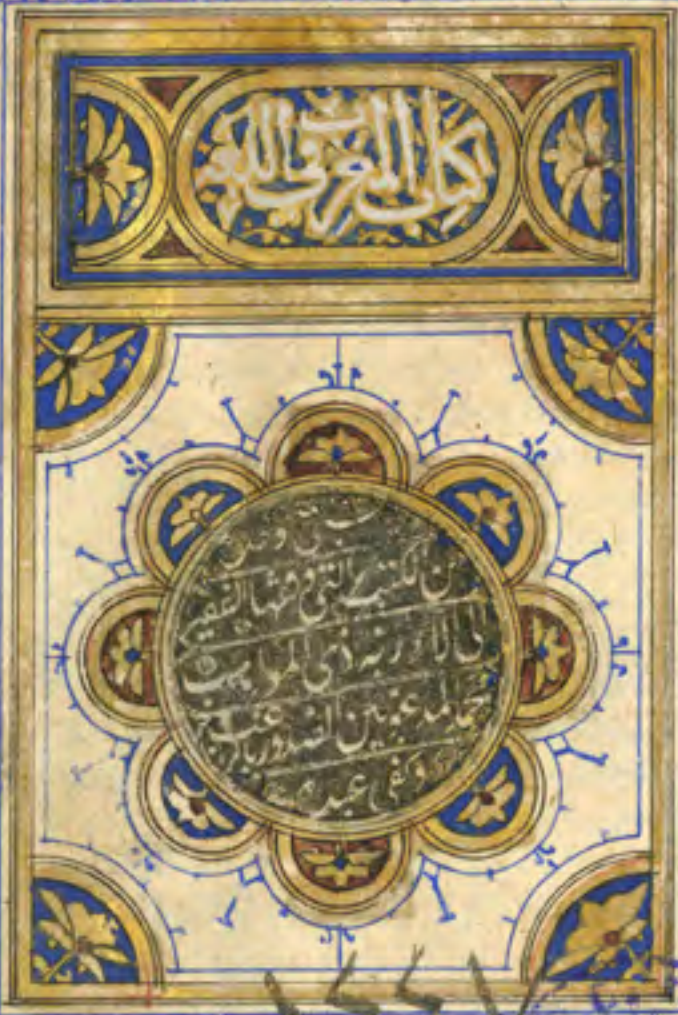 كتاب المغرب في اللغة
من الكتب التي وقفها الفقير
الى آلاء ربه ذي المواهب
محمد المدعو بين الصدور بالراغب
وكفى عبده